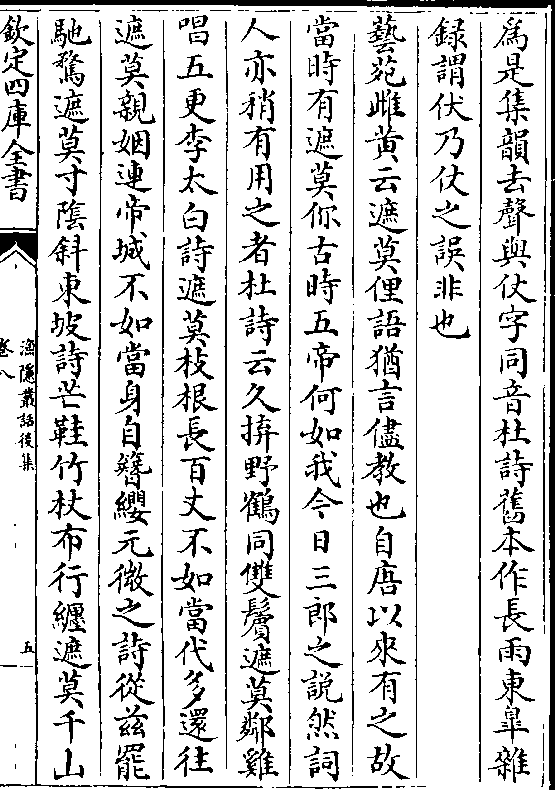 為是集韻去聲與仗字同音杜詩舊本作長雨東臯雜
録謂伏乃仗之誤非也
藝苑雌黄云遮莫俚語猶言儘教也自唐以來有之故
當時有遮莫你古時五帝何如我今日三郎之説然詞
人亦稍有用之者杜詩云久拚野鶴同雙鬢遮莫鄰雞
唱五更李太白詩遮莫枝根長百丈不如當代多還往
遮莫親姻連帝城不如當身自簪纓元微之詩從兹罷
馳騖遮莫寸隂斜東坡詩芒鞋竹杖布行纒遮莫千山
欽定四庫全書
漁隱叢話後集
卷八
五